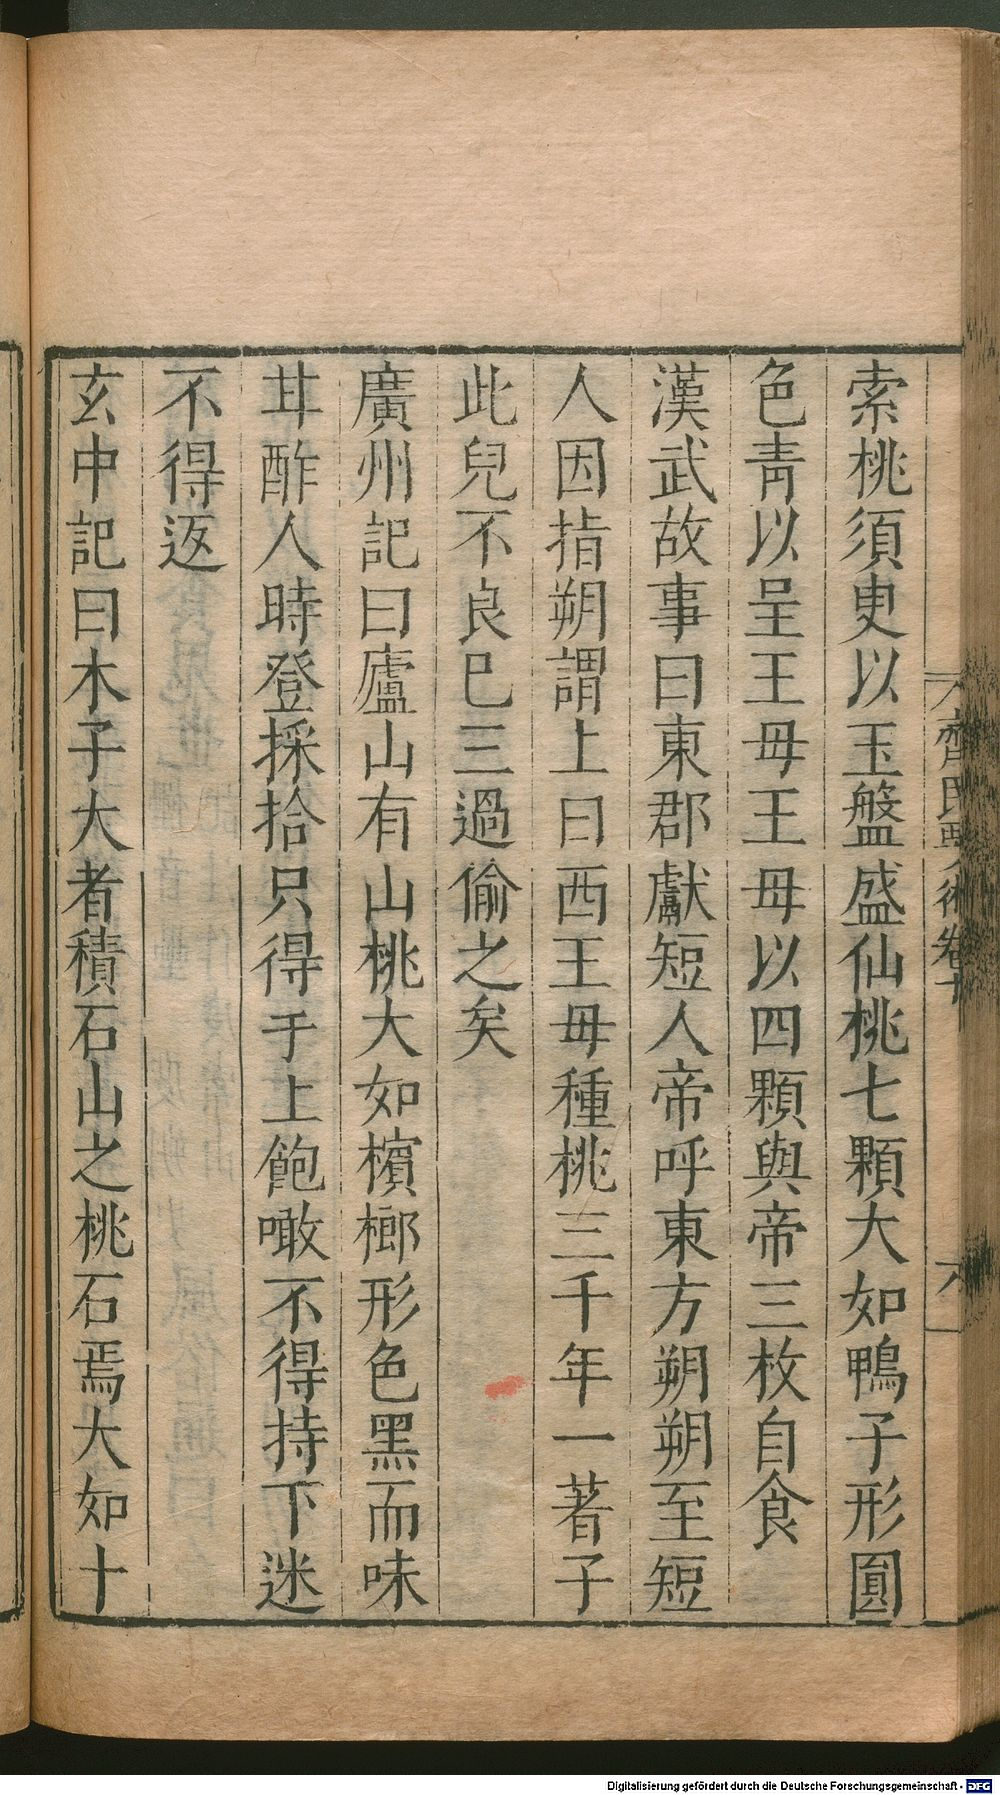 索桃須更以玉盤盛仙桃七顆大如鴨子形圓
色青以呈王母王母以四顆與帝三枚自食
漢武故事曰東郡獻短人帝呼東方朔朔至短
人因指朔謂上曰西王母種桃三千年一著子
此兒不良已三過偷之矣
廣州記曰廬山有山桃大如檳榔形色黑而味
甘酢人時登採拾只得于上飽噉不得持下迷
不得返
玄中記曰木子大者積石山之桃石焉大如十
齊民要術卷十
六
Digitalisierung gefördert durch die Deutsche Forschungsgemeinschaft - DFG